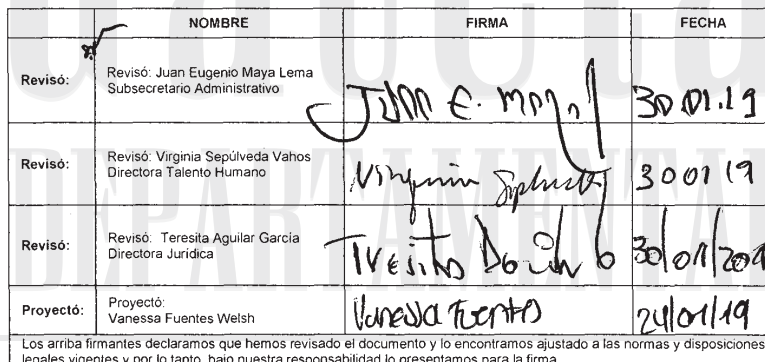 NOMBRE FIRMA FECHA
Revisó: Revisó: Juan Eugenio Maya Lema
Subsecretario Administrativo
Juan E. Maya L
30.01.19
Revisó: Revisó: Virginia Sepúlveda Vahos
Directora Talento Humano
Virginia Sepúlveda
30 01 19
Revisó: Revisó: Teresita Aguilar García
Directora Jurídica
Teresita Aguilar G
30/01/201
Proyectó: Proyectó:
Vanessa Fuentes Welsh
Vanessa Fuentes
24/01/19
Los arriba firmantes declaramos que hemos revisado el documento y lo encontramos ajustado a las normas y disposiciones
legales vigentes y por lo tanto, bajo nuestra responsabilidad lo presentamos para la firma.
DEPARTAMENTA